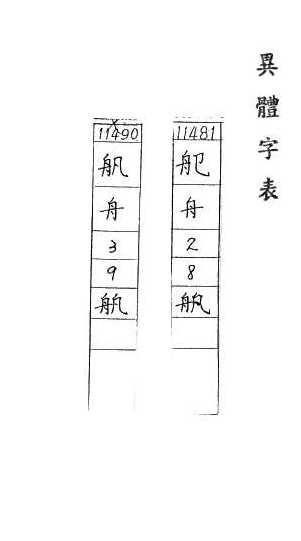 異體字表
11481
舟
2
8
11490
舤
舟
3
9